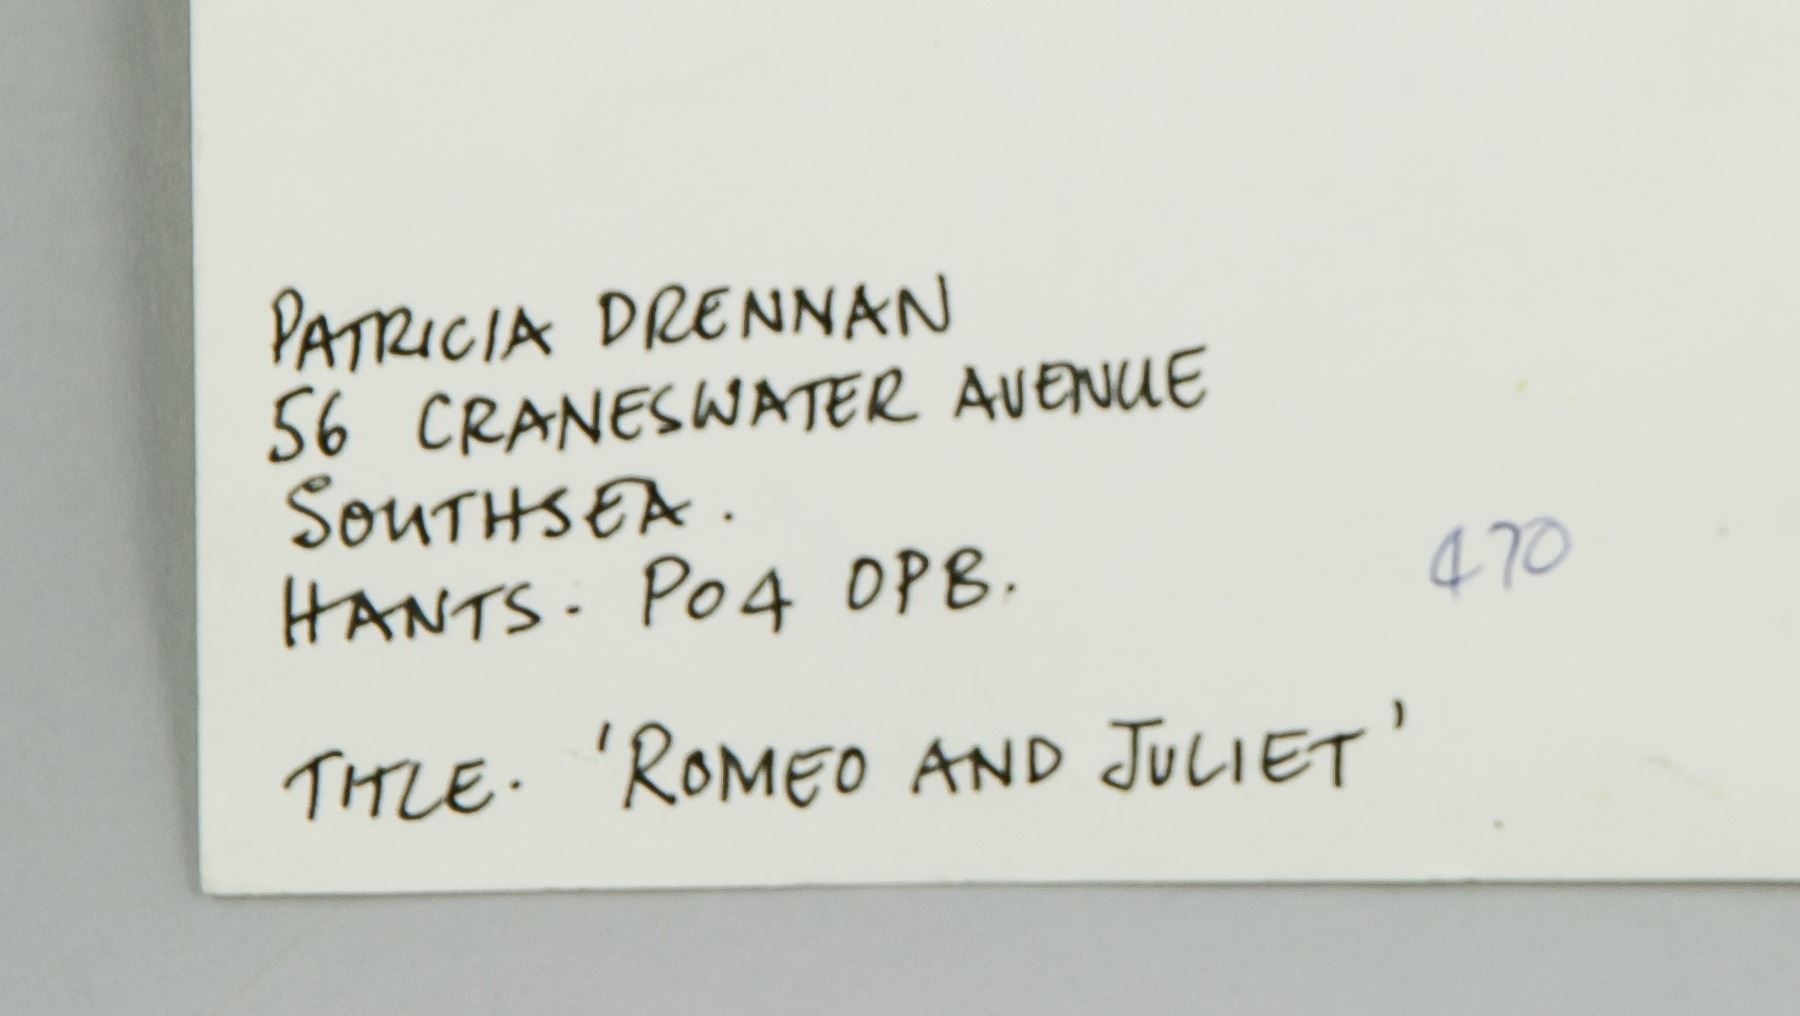 PATRICIA DRENNAN
56 CRANESWATER AVENUE
SOUTHSEA.
HANTS. PO4 OPB.
470
TITLE. 'ROMEO AND JULIET'